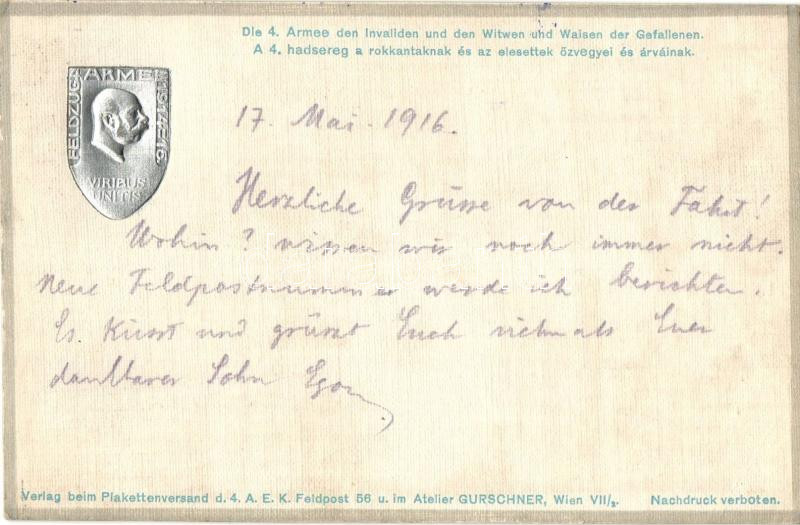 Die 4. Armee den Invaliden und den Witwen und Waisen der Gefallenen.
A 4. hadsereg a rokkantaknak és az elesettek özvegyei és árváinak.
FELDZUG 4. ARMEE 1914-16.
VIRIBUS
UNITIS
17. Mai. 1916.
Herzliche Grüsse von der Fahrt!
Wohin? wissen wir noch immer nicht.
Neue Feldpostnummer werde ich berichten.
Es küsst und grüsst Euch vielmals Euer
dankbarer Sohn Egon
Verlag beim Plakettenversand d. 4. A. E. K. Feldpost 56 u. im Atelier GURSCHNER, Wien VII/2. Nachdruck verboten.